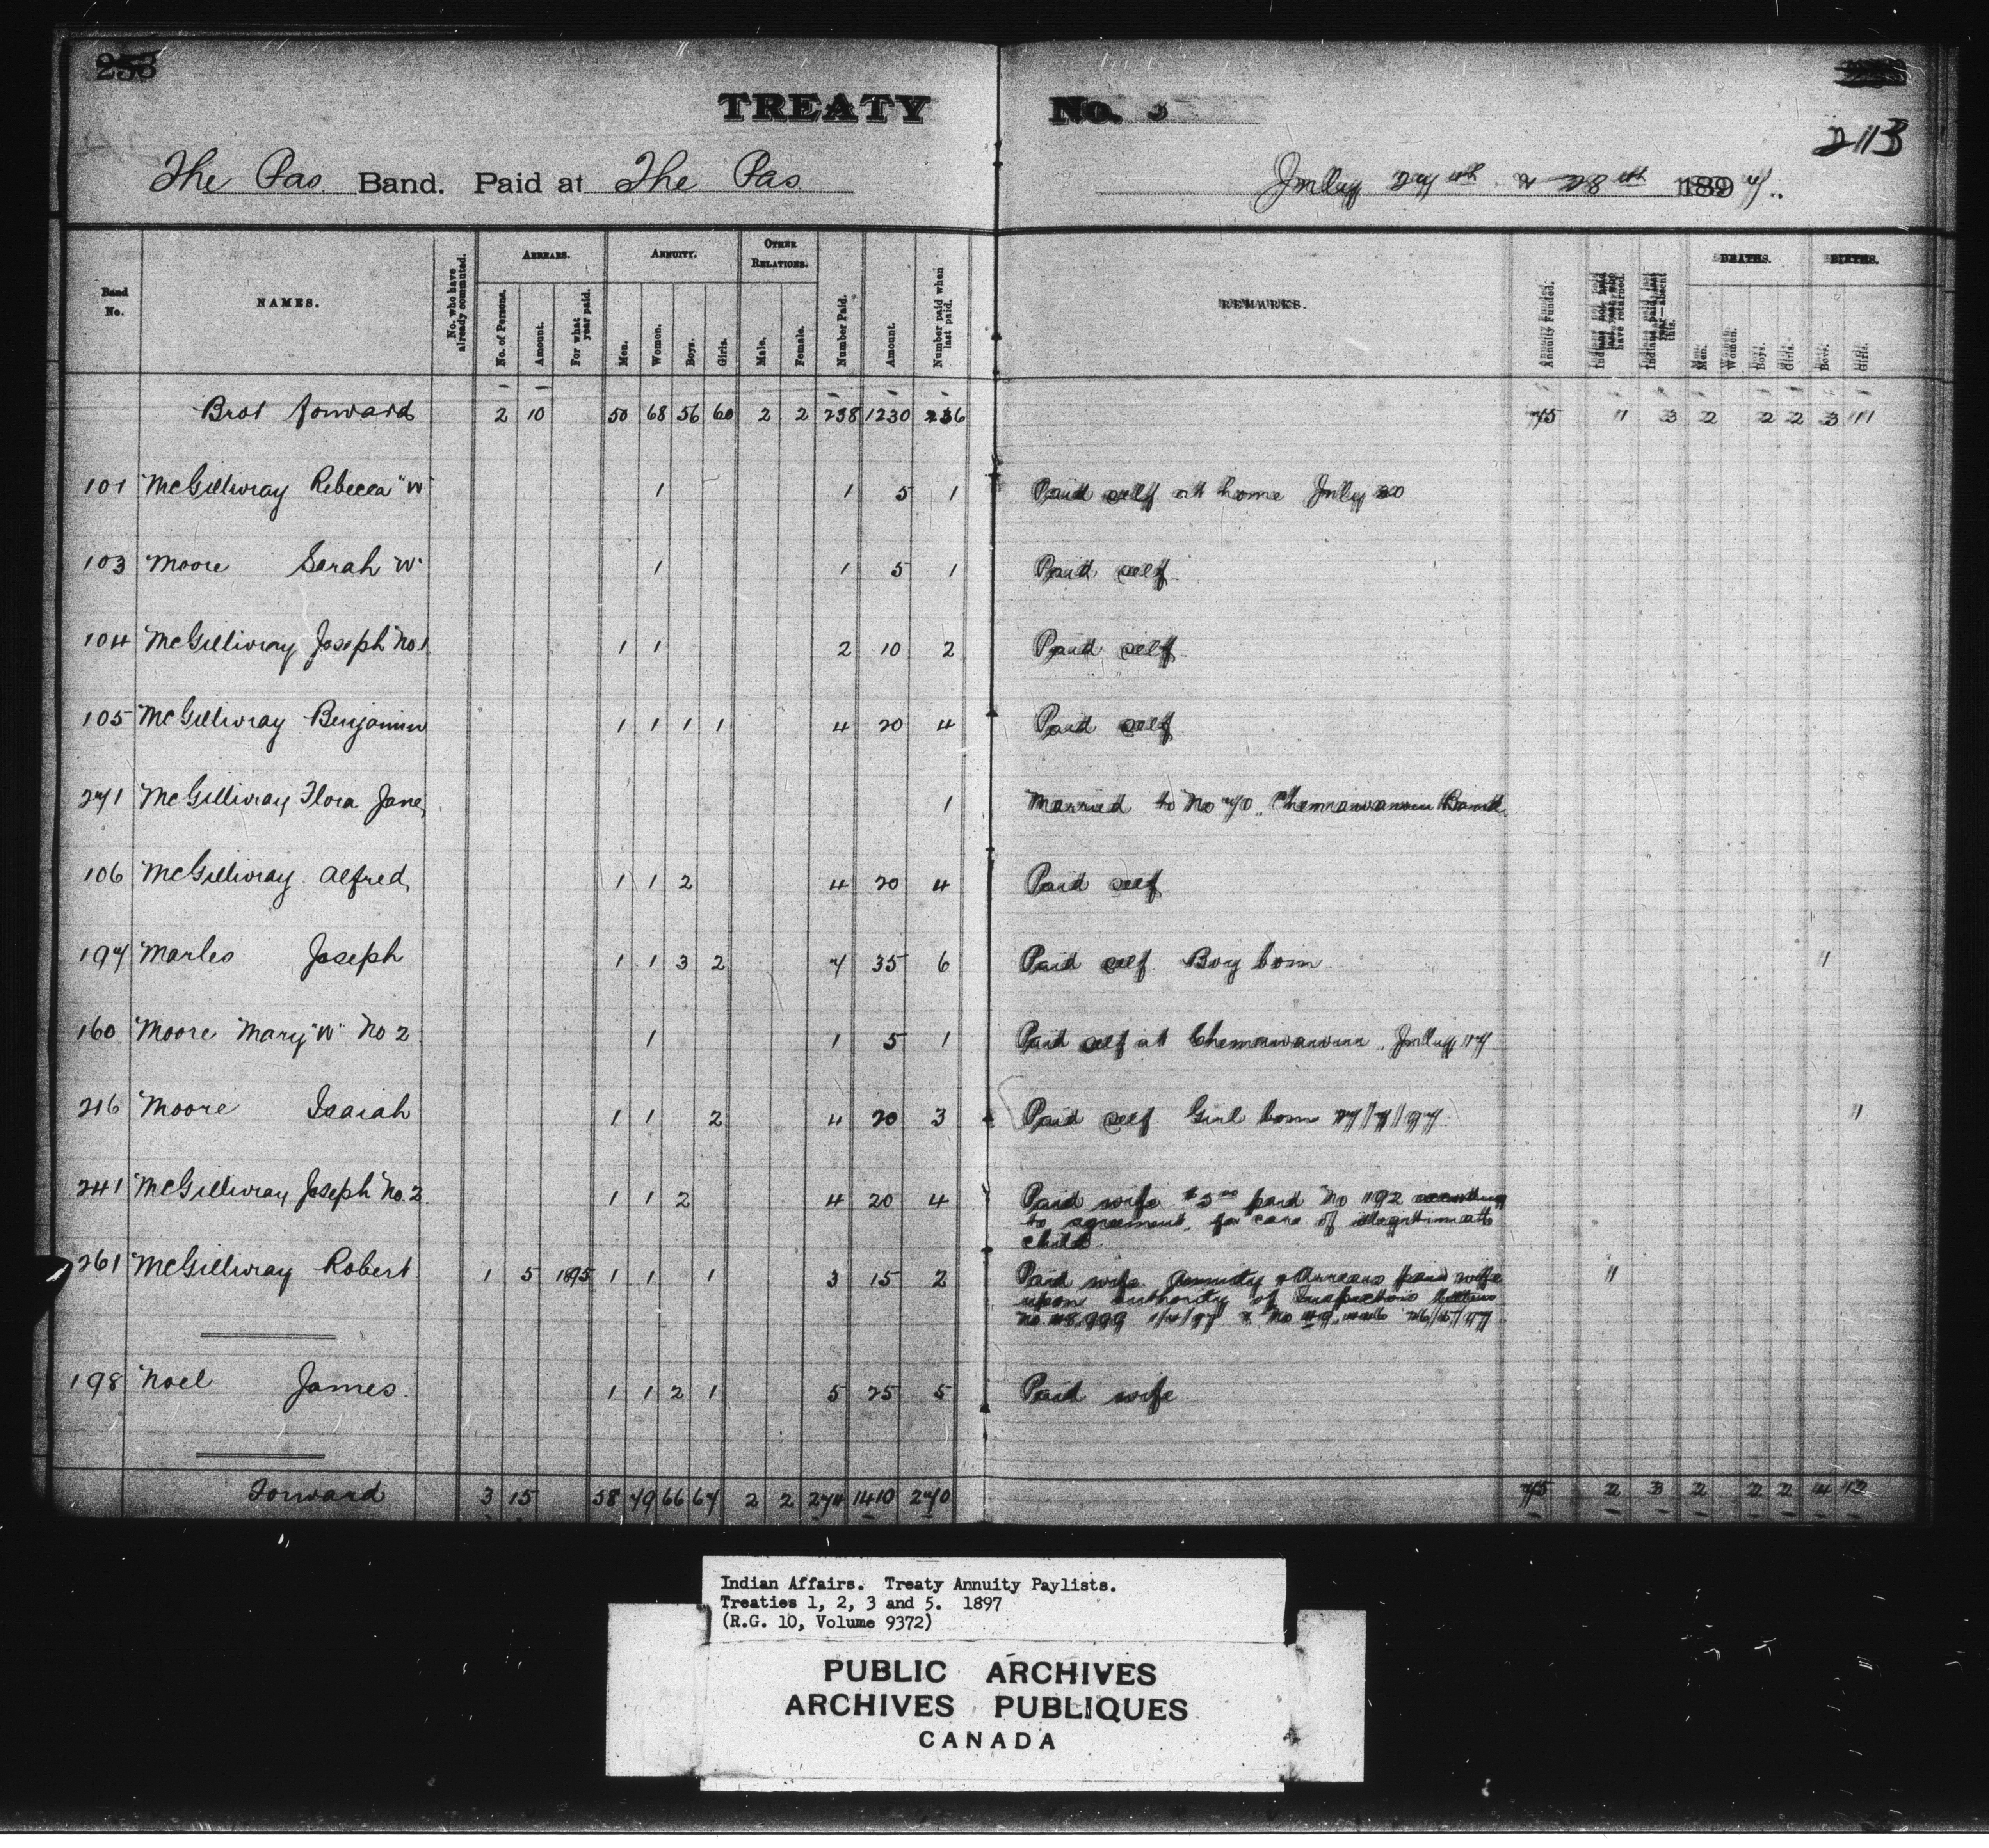 253
TREATY No. 5
213
The Pas Band. Paid at The Pas July 27th & 28th 1897.
Band No.
NAMES.
No. who have already commuted.
ARREARS.
No. of Persons.
Amount.
For what year paid.
ANNUITY.
Men.
Women.
Boys.
Girls.
OTHER RELATIONS.
Male.
Female.
Number Paid.
Amount.
Number paid when last paid.
REMARKS.
Annuity Funded.
Indians not paid last year, who have returned.
Indians paid last year—absent this.
DEATHS.
Men.
Women.
Boys.
Girls.
BIRTHS.
Boys.
Girls.
Brot forward 2 10 50 68 56 60 2 2 238 1230 236 75 1 3 2 2 2 3 11
101 McGillivray Rebecca "W" 1 1 5 1 Paid self at home July 20
103 Moore Sarah W 1 1 5 1 Paid self
104 McGillivray Joseph No. 1 1 1 2 10 2 Paid self
105 McGillivray Benjamin 1 1 1 1 4 20 4 Paid self
271 McGillivray Flora Jane 1 Married to No 70 Chemawawin Band
106 McGillivray Alfred 1 1 2 4 20 4 Paid self
197 Marles Joseph 1 1 3 2 7 35 6 Paid self Boy born 1
160 Moore Mary "W" No 2 1 1 5 1 Paid self at Chemawawin July 17
216 Moore Isaiah 1 1 2 4 20 3 Paid self Girl born 27/7/97 1
241 McGillivray Joseph No. 2 1 1 2 4 20 4 Paid wife $5 00 paid No 192 according
to agreement, for care of illegitimate
child
261 McGillivray Robert 1 5 1895 1 1 1 3 15 2 Paid wife Annuity & Arrears paid wife 1
upon authority of Inspectors
198 Noel James 1 1 2 1 5 25 5 Paid wife
Forward 3 15 58 79 66 67 2 2 274 1410 270 75 2 3 2 2 2 4 12
Indian Affairs. Treaty Annuity Paylists.
Treaties 1, 2, 3 and 5. 1897
(R.G. 10, Volume 9372)
PUBLIC ARCHIVES
ARCHIVES PUBLIQUES
CANADA